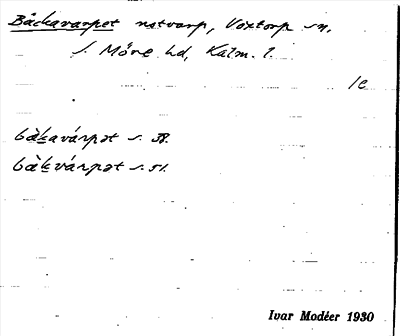 Bäckavarpet notvarp, Voxtorp sn,
S. Möre hd, Kalm. l.
1e
bäkavárpət s. 38.
bäkvárpət s. 51.
Ivar Modéer 1930